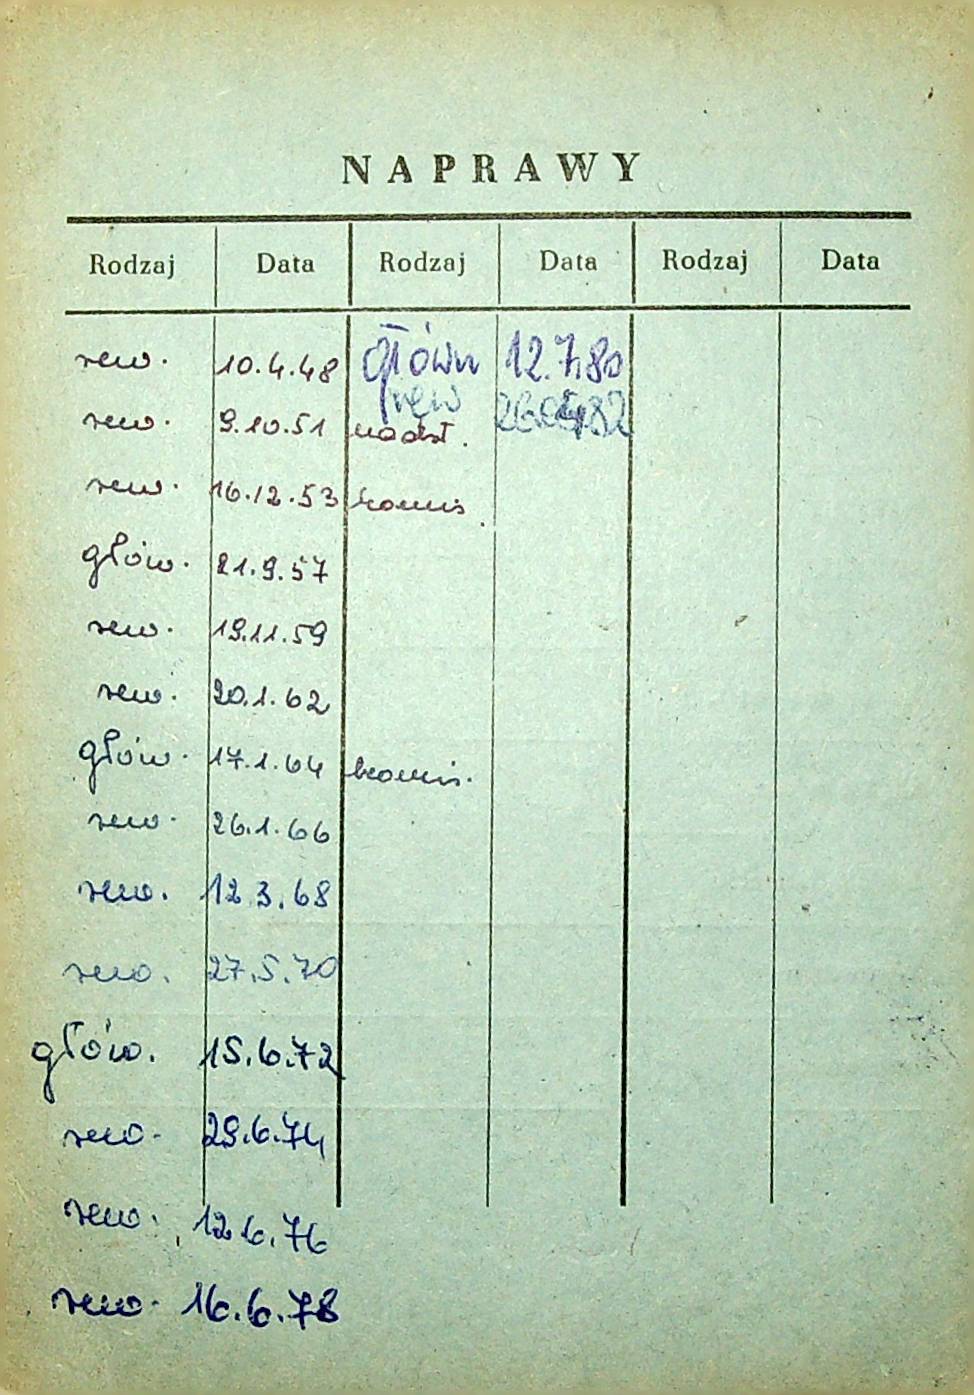 NAPRAWY
Rodzaj Data Rodzaj Data Rodzaj Data
rew. 10.4.48 główn 12.7.80
rew
rew. 9.10.51 nadst.
rew. 16.12.53 komis.
głów. 21.9.57
rew. 19.11.59
rew. 20.1.62
głów. 17.1.64 komis.
rew. 26.1.66
rew. 12.3.68
rew. 27.5.70
głów. 15.6.72
rew. 29.6.74
rew. 12.6.76
rew. 16.6.78